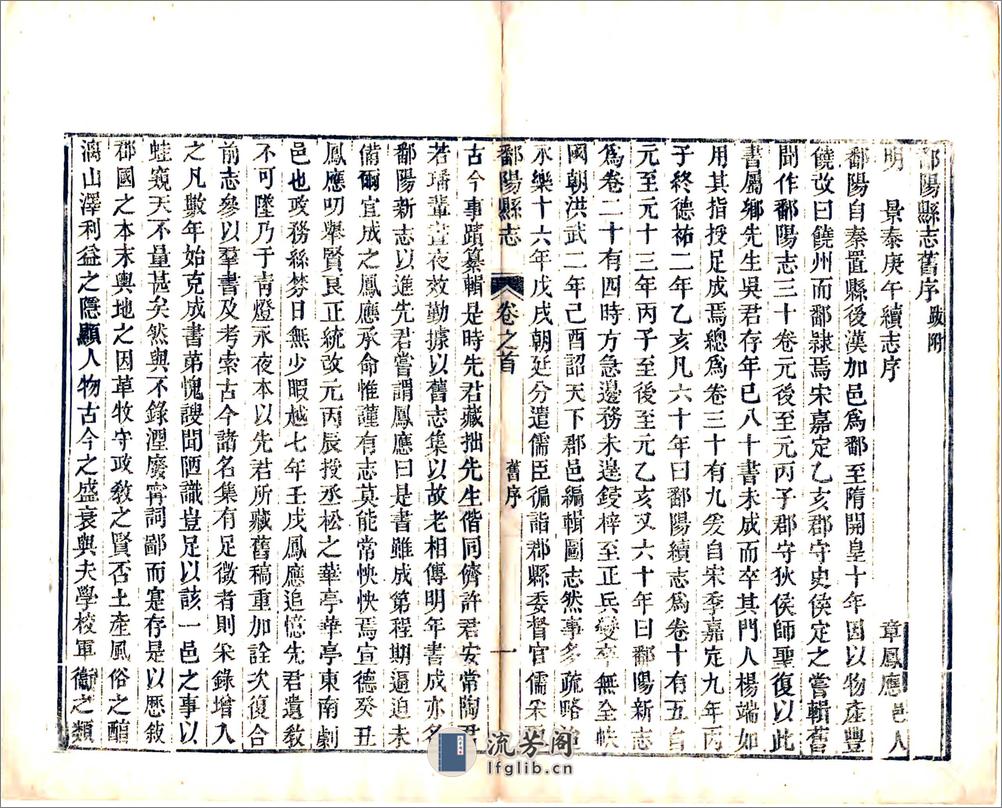 鄱陽縣志舊序 跋附
明 景泰庚午續志序 章鳳應 邑人
鄱陽自秦置縣後漢加邑爲鄱至隋開皇十年因以物產豐
饒改曰饒州而鄱隸焉宋嘉定乙亥郡守史侯定之嘗輯舊
聞作鄱陽志三十卷元後至元丙子郡守狄侯師聖復以此
書屬鄉先生吳君存年已八十書未成而卒其門人楊端如
用其指授足成焉總爲卷三十有九爰自宋季嘉定九年丙
子終德祐二年乙亥凡六十年曰鄱陽續志爲卷十有五自
元至元十三年丙子至後至元乙亥又六十年曰鄱陽新志
爲卷二十有四時方急邊務未遑鋟梓至正兵變卒無全帙
國朝洪武二年己酉詔天下郡邑編輯圖志然事多疏略
永樂十六年戊戌朝廷分遣儒臣徧詣郡縣委督官儒采
鄱陽縣志 卷之首 舊序 一
古今事蹟纂輯是時先君藏拙先生偕同儕許君安常陶君
若璠輩晝夜效勤據以舊志集以故老相傳明年書成亦名
鄱陽新志以進先君嘗謂鳳應曰是書雖成第程期逼迫未
備爾宜成之鳳應承命惟謹有志莫能常怏怏焉宣德癸丑
鳳應叨舉賢良正統改元丙辰授丞松之華亭華亭東南劇
邑也政務絲棼日無少暇越七年壬戌鳳應追憶先君遺敎
不可墜乃于青燈永夜本以先君所藏舊稿重加詮次復合
前志參以羣書及考索古今諸名集有足徵者則采錄增入
之凡數年始克成書第愧謏聞陋識豈足以該一邑之事以
蛙窺天不量甚矣然與不錄湮廢寧詞鄙而蹇存是以歷敘
郡國之本末輿地之因革牧守政敎之賢否土產風俗之醇
漓山澤利益之隱顯人物古今之盛衰與夫學校軍衞之類
流芳阁
lfglib.cn